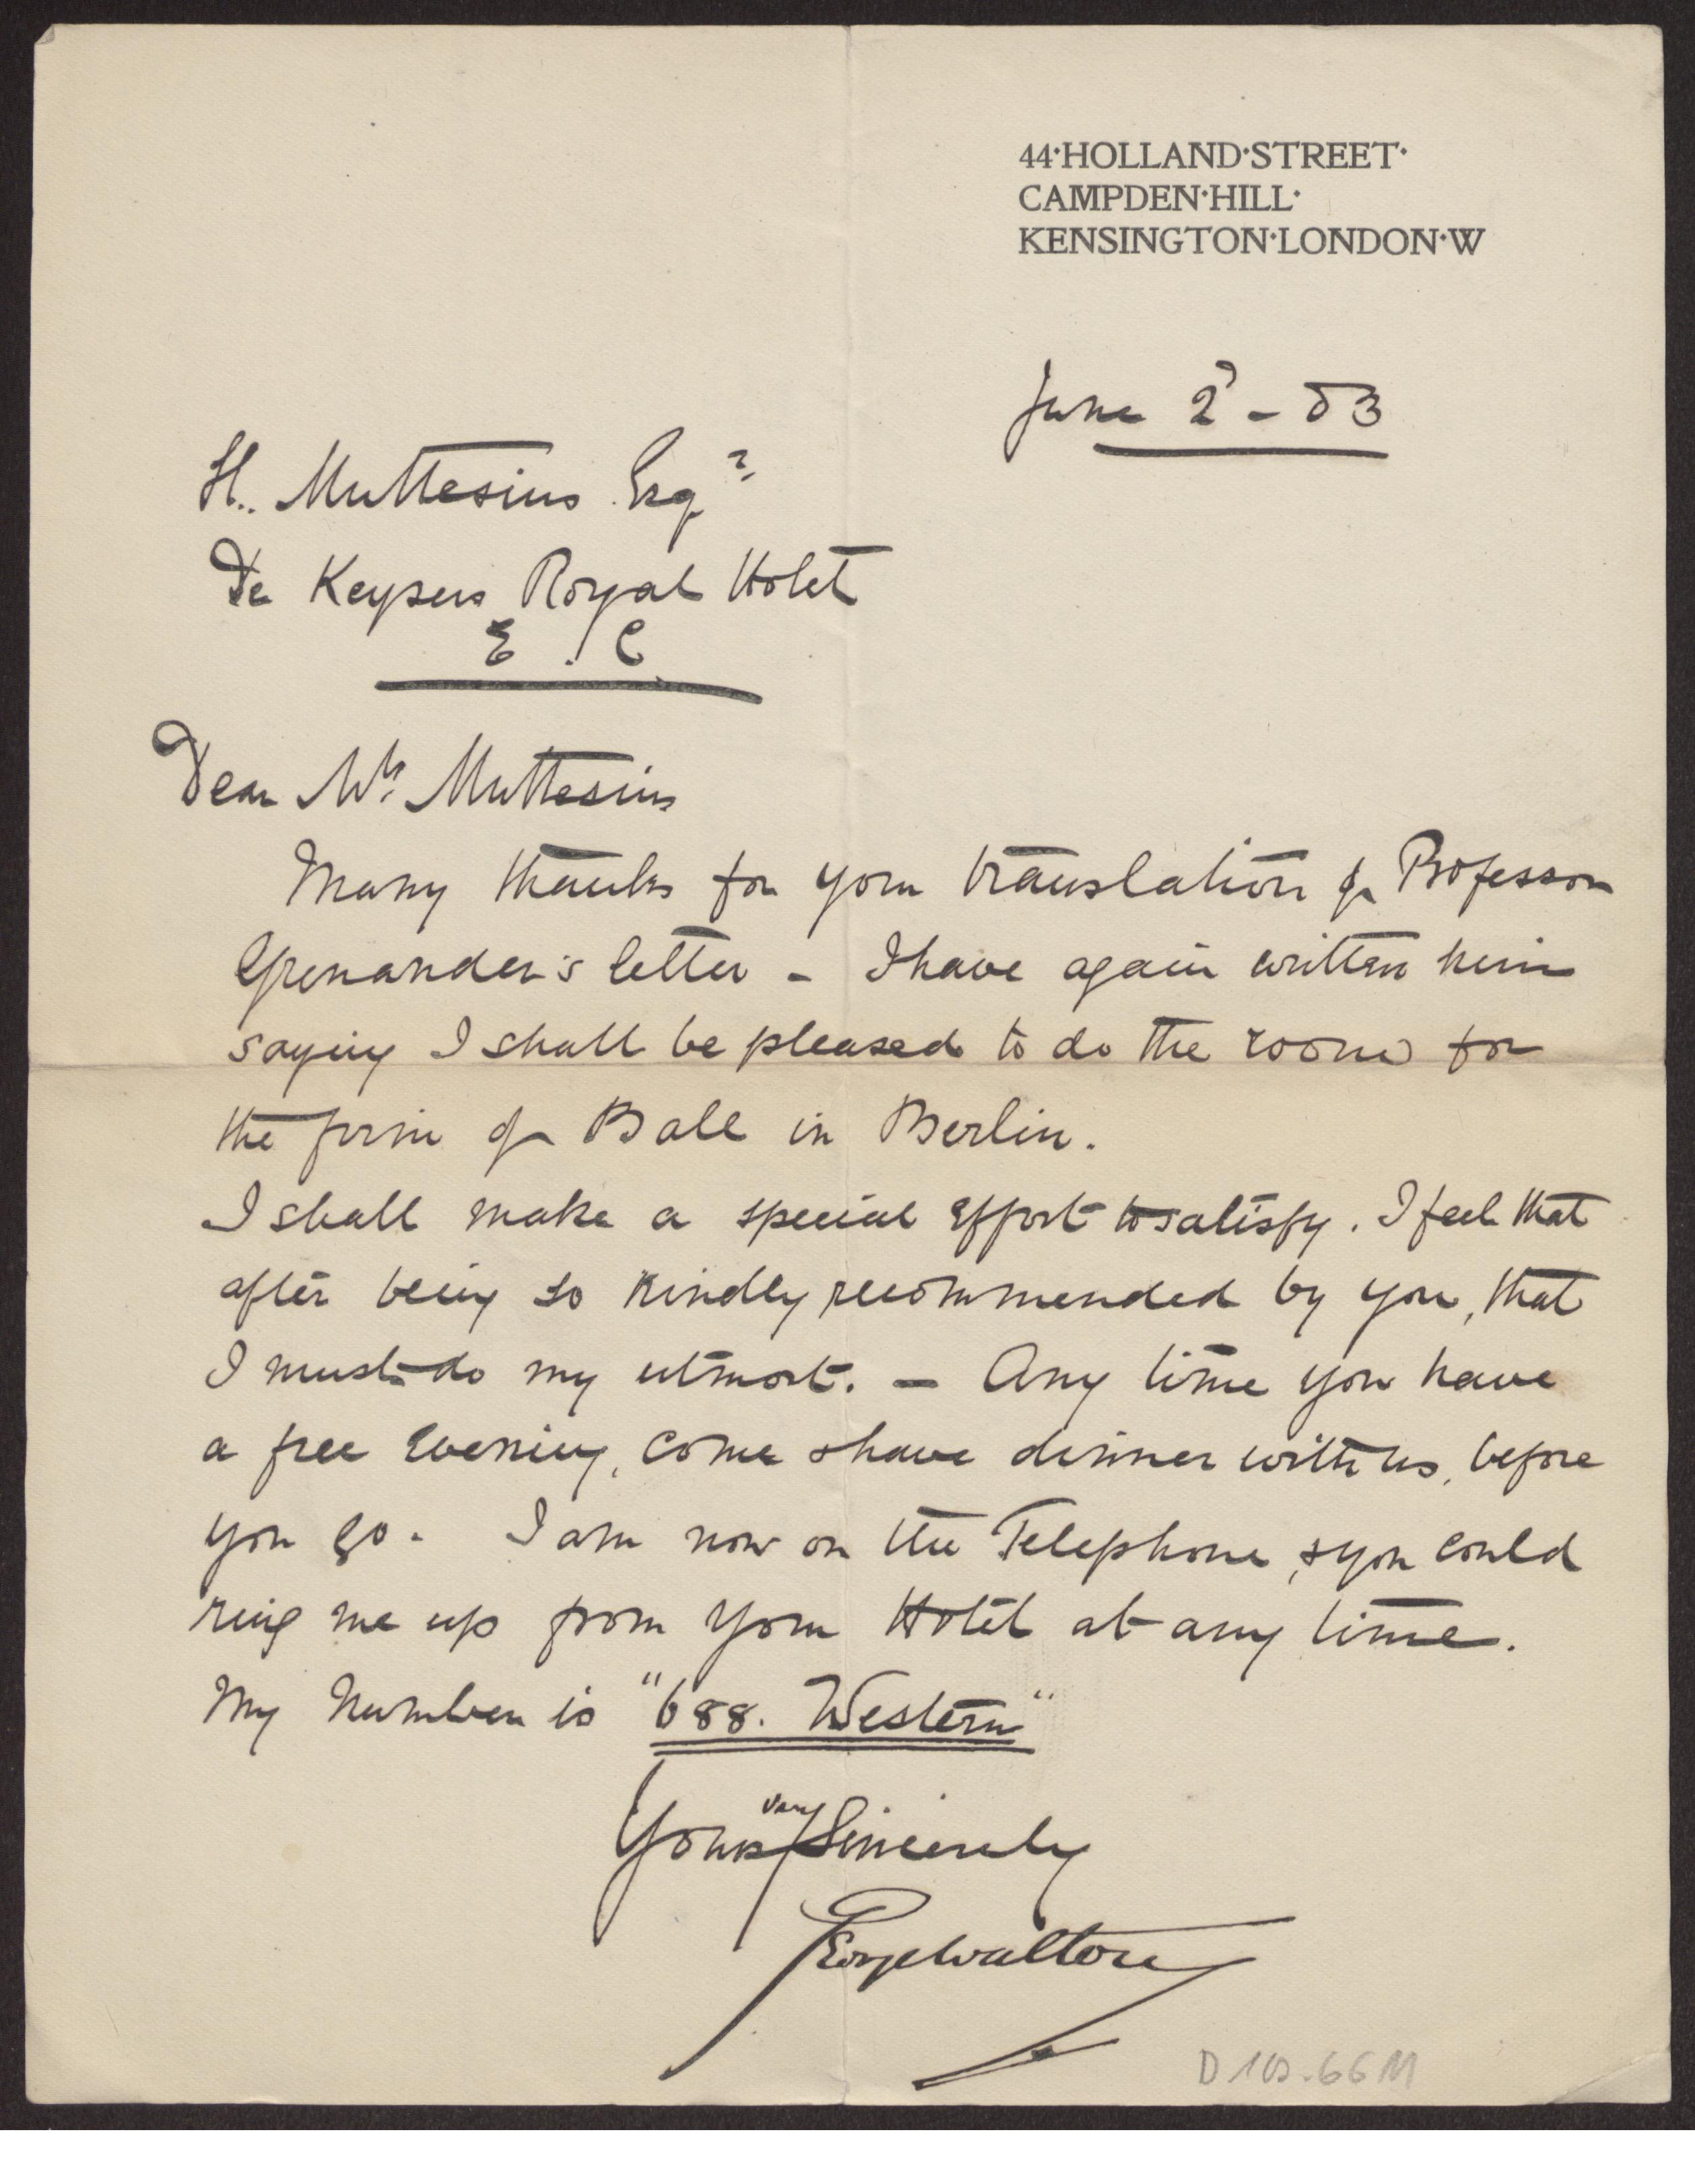 44·HOLLAND·STREET·
CAMPDEN·HILL·
KENSINGTON·LONDON·W
June 2d - 03
H. Muttesius Esqr
De Keysers Royal Hotel
E. C
Dear Mr. Muttesius
Many thanks for your translation of Professor
Grenander's letter - I have again written him
saying I shall be pleased to do the room for
the firm of Ball in Berlin.
I shall make a special effort to satisfy. I feel that
after being so kindly recommended by you, that
I must do my utmost. - Any time you have
a free evening, come & have dinner with us, before
you go. I am now on the Telephone, & you could
ring me up from your Hotel at any time.
My Number is "688. Western"
Yours very Sincerely
George Walton
D 102.66 M